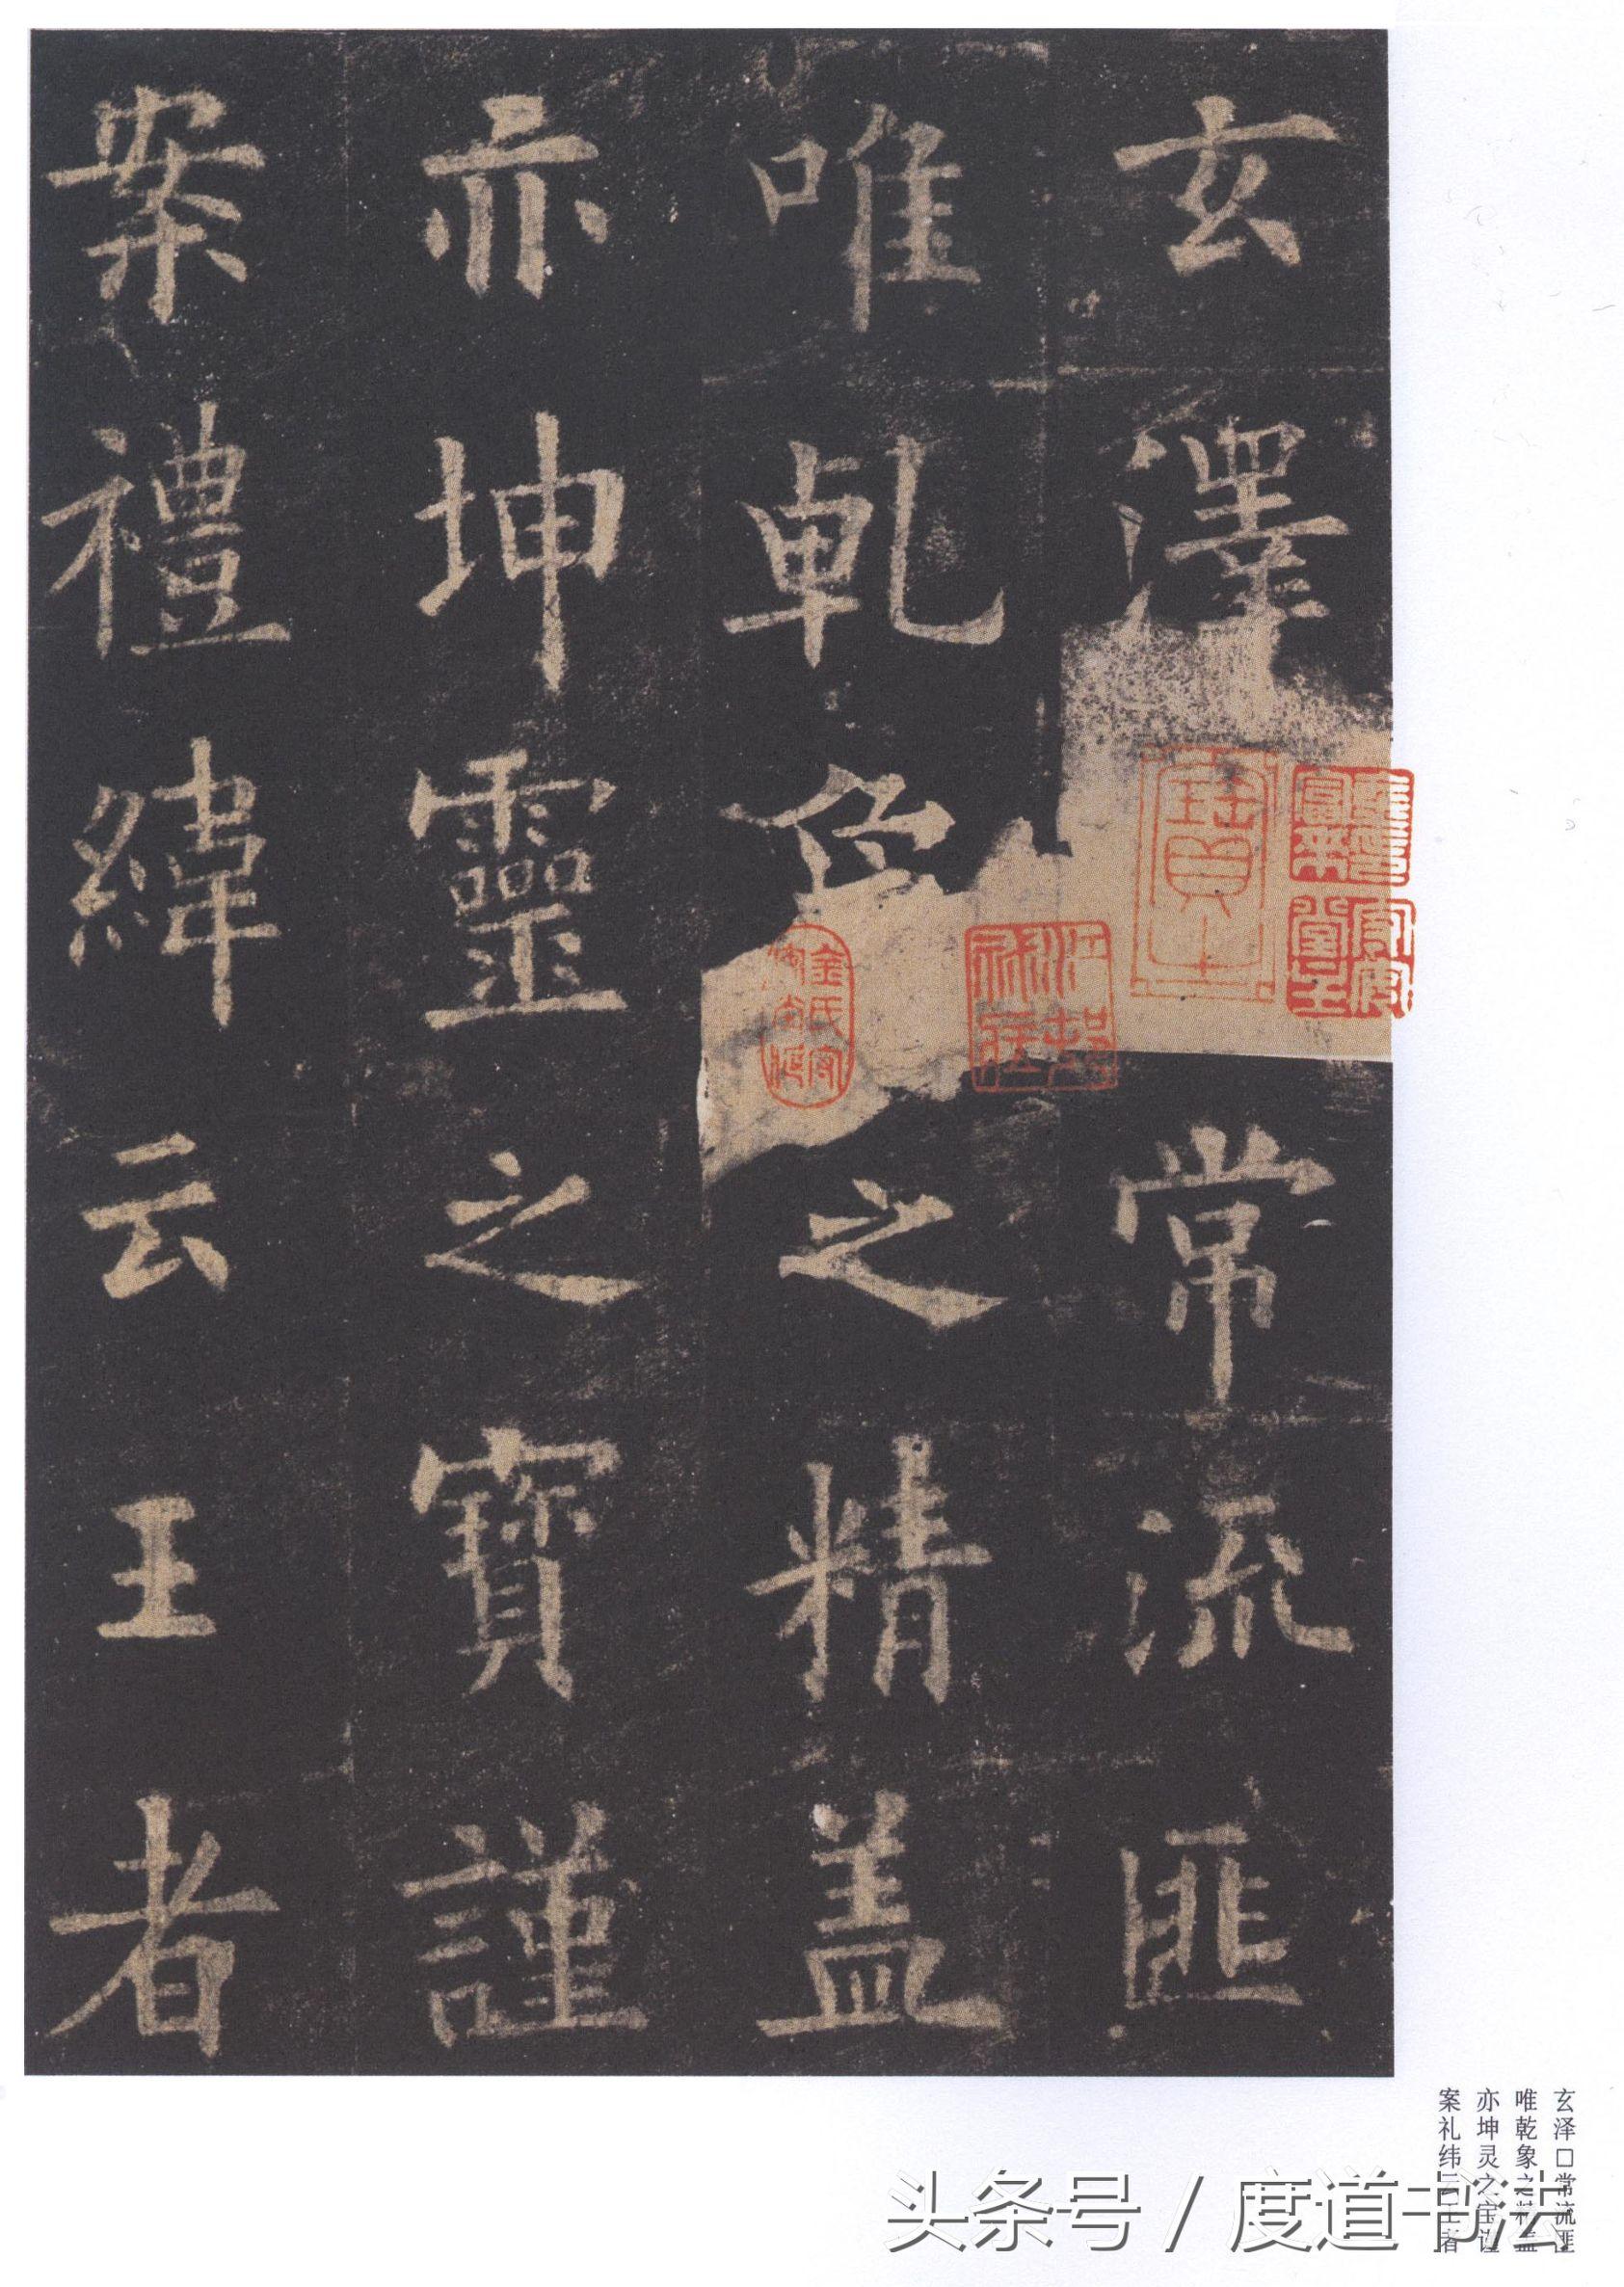 玄澤常流匪
唯乹之精盖
亦坤靈之寶謹
案禮緯云王者
玄泽□常流匪
唯乾象之精盖
亦坤灵之宝谨
案礼纬云王者
头条号 / 度道书法